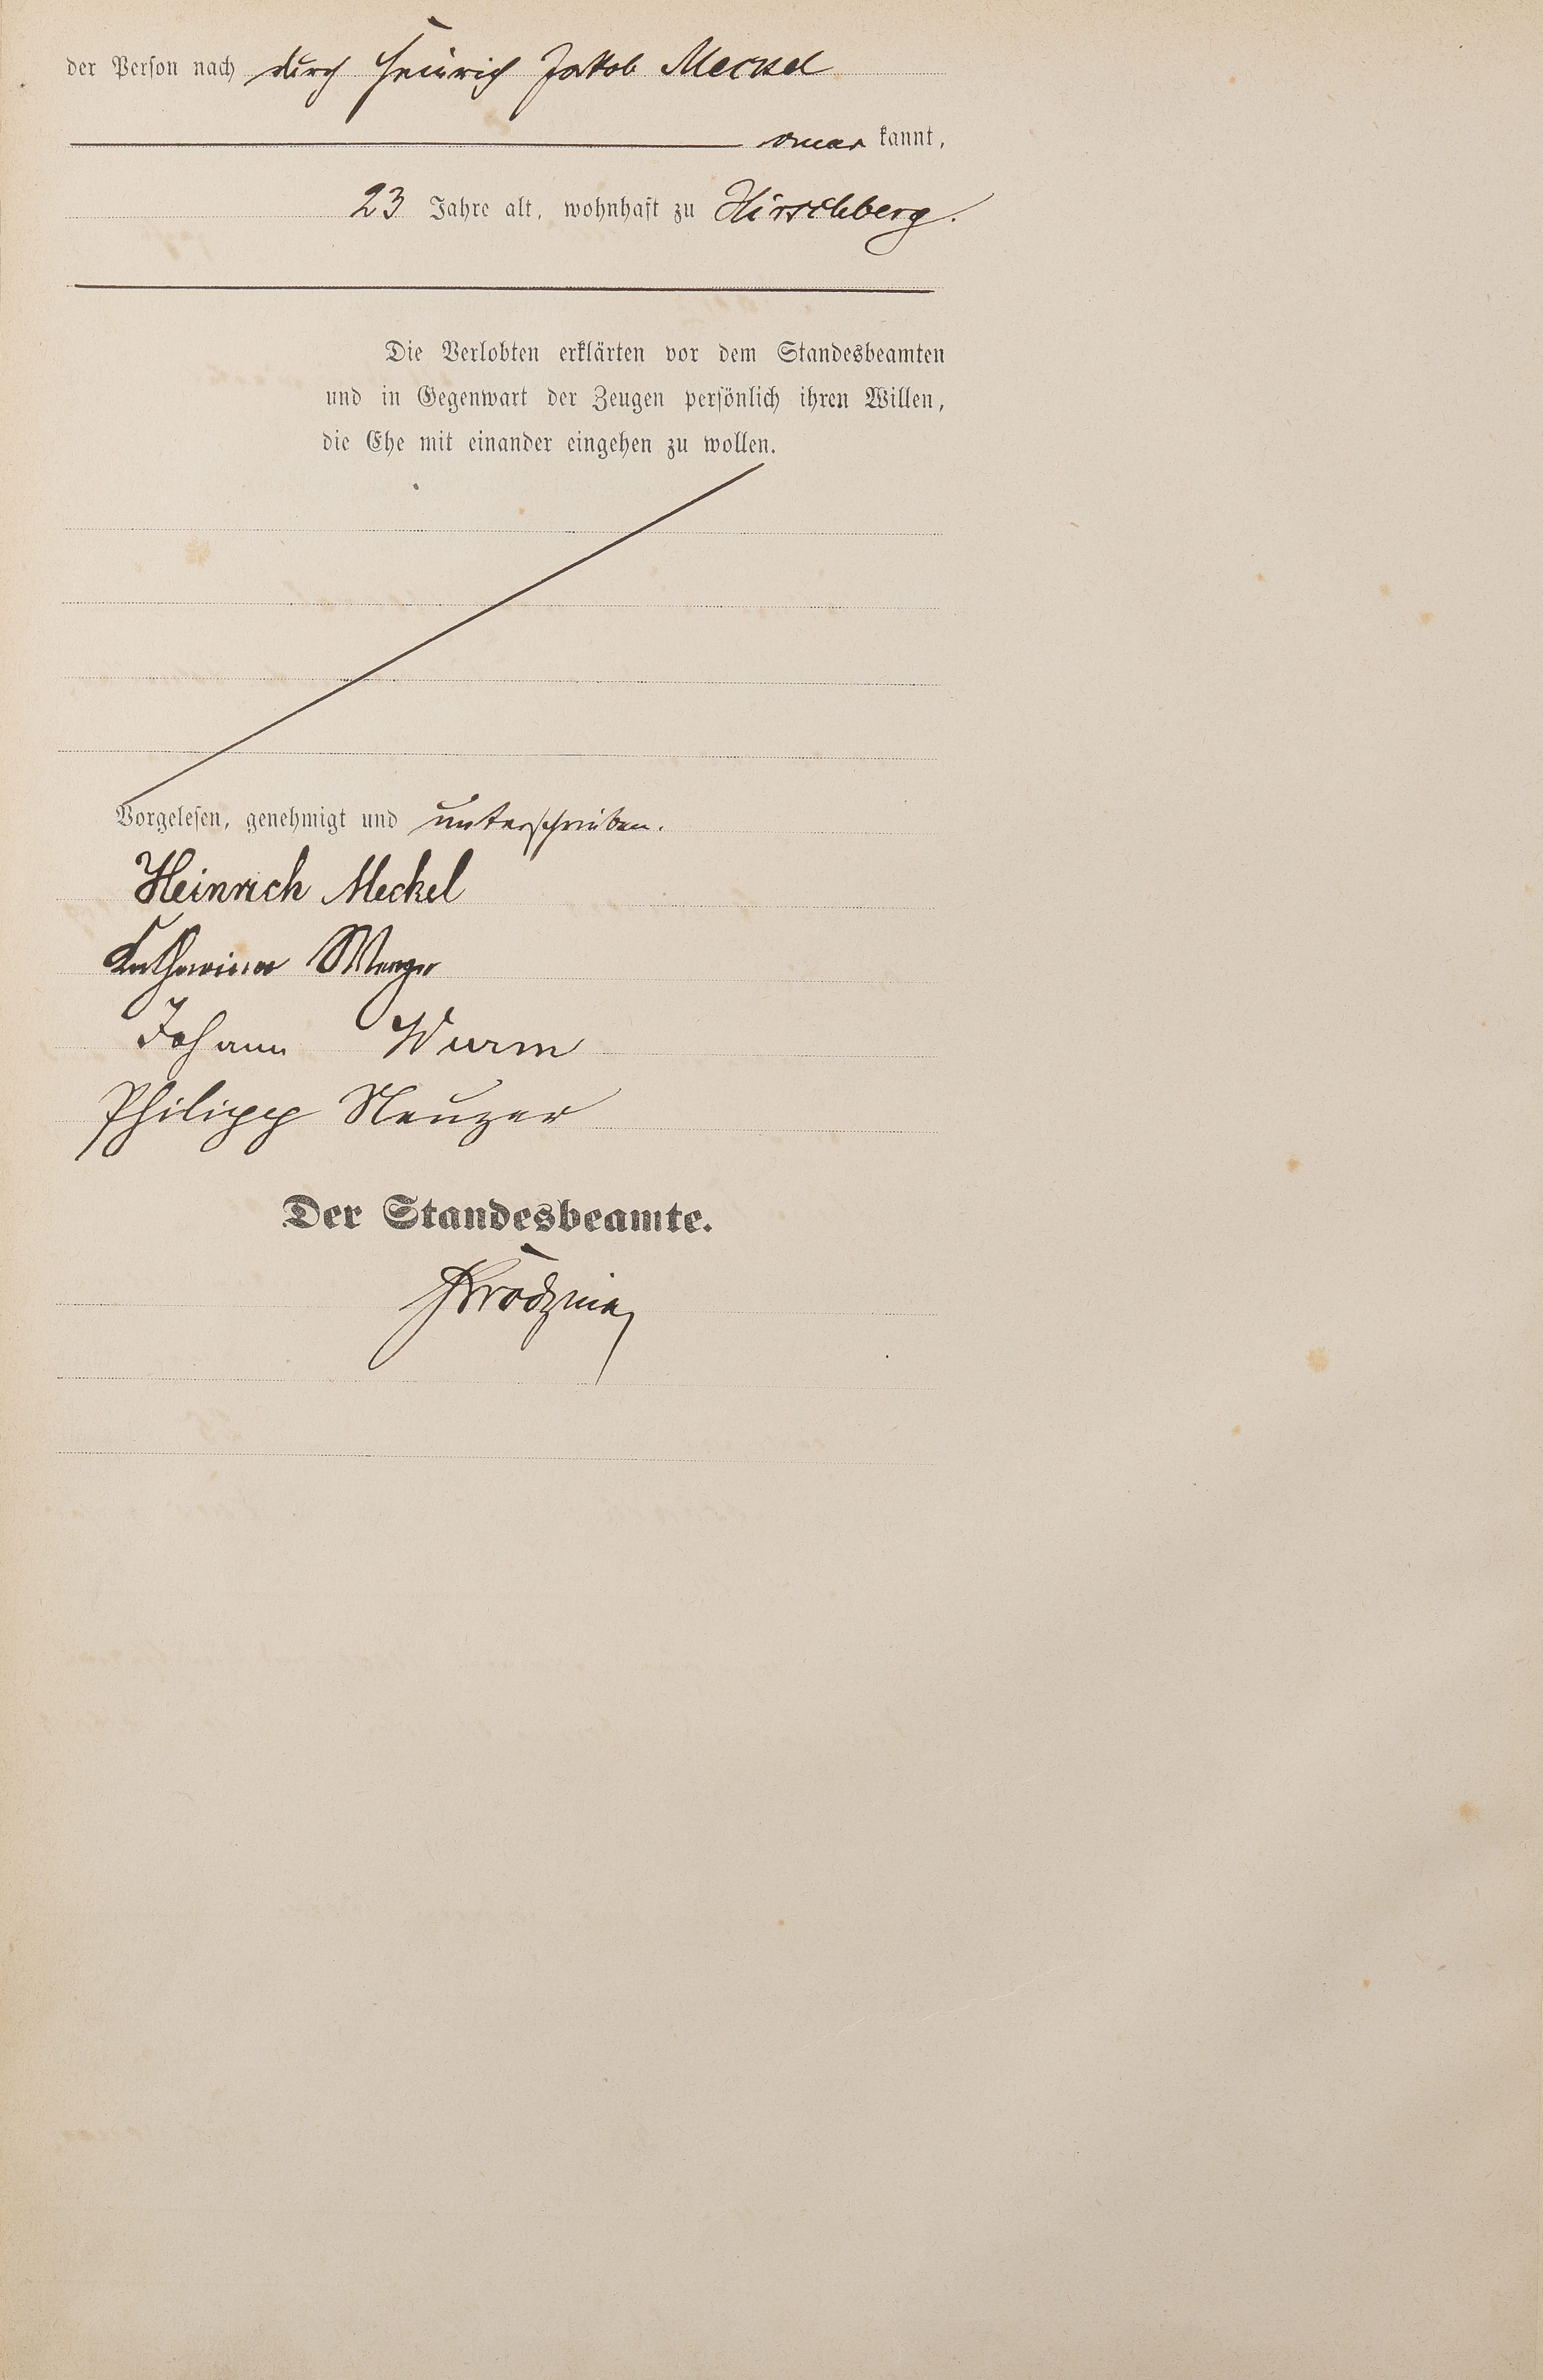 der Person nach durch Heinrich Jakob Meckel
aner kannt,
23 Jahre alt, wohnhaft zu Hirschberg.
Die Verlobten erklärten vor dem Standesbeamten
und in Gegenwart der Zeugen persönlich ihren Willen,
die Ehe mit einander eingehen zu wollen.
Vorgelesen, genehmigt und unterschrieben.
Heinrich Meckel
Katharina
Johann Wurm
Philipp Neuzer
Der Standesbeamte.